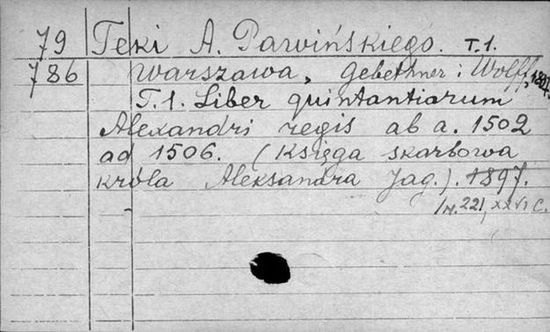 79 Teki A. Pawińskiego. T.1.
786 Warszawa, Gebethner i Wolff, 1897.
T.1. Liber quintantiarum
Alexandri regis ab a. 1502
ad 1506. (Księga skarbowa
króla Aleksandra Jag.). 1897.
XXVI C.